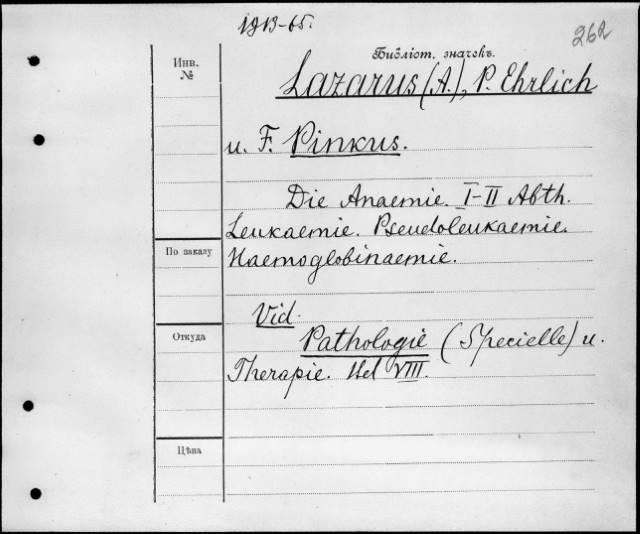 1913-65.
262
Библіот. значекъ.
Инв.
№
Lazarus (A.), P. Ehrlich
u. F. Pinkus.
Die Anaemie. I-II Abth.
Leukaemie. Pseudoleukaemie.
Haemoglobinaemie.
По заказу
Vid.
Откуда
Pathologie (Specielle) u.
Therapie. Bd VIII.
Цѣна